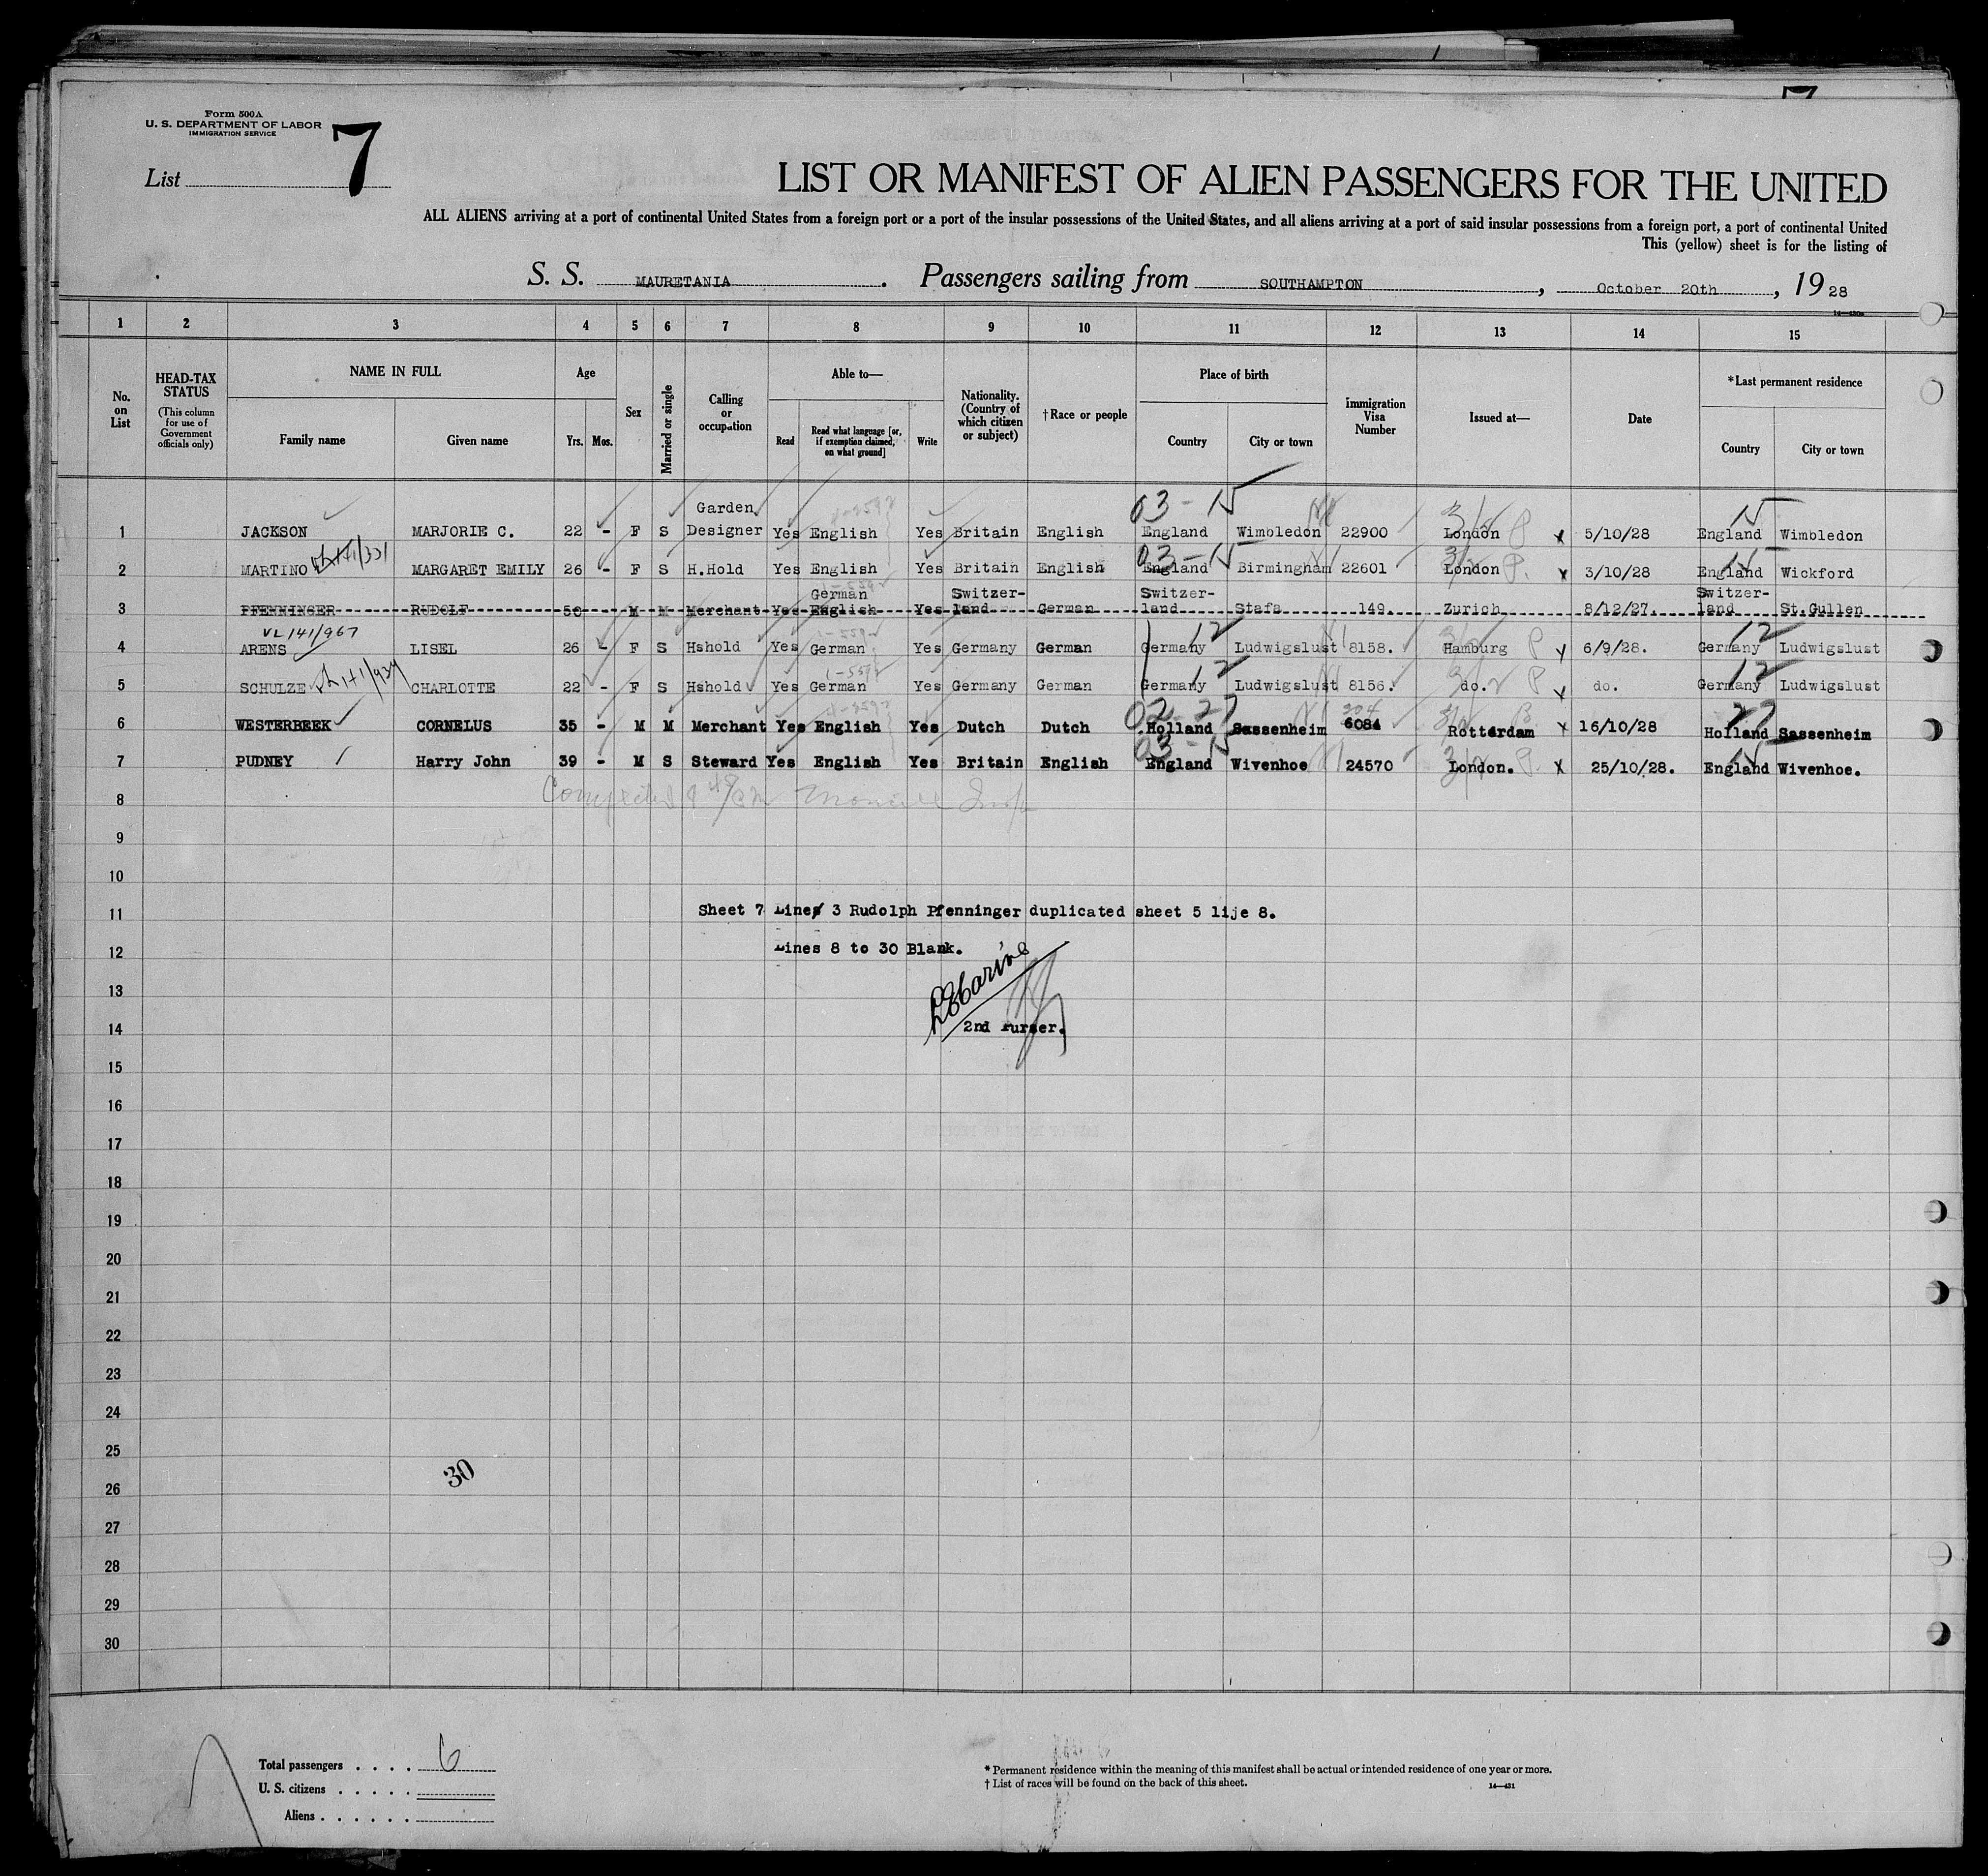 Form 500A
U. S. DEPARTMENT OF LABOR
IMMIGRATION SERVICE
List 7
LIST OR MANIFEST OF ALIEN PASSENGERS FOR THE UNITED
ALL ALIENS arriving at a port of continental United States from a foreign port or a port of the insular possessions of the United States, and all aliens arriving at a port of said insular possessions from a foreign port, a port of continental United
This (yellow) sheet is for the listing of
S. S. MAURETANIA. Passengers sailing from SOUTHAMPTON, October 20th, 1928
14—430a
1 2 3 4 5 6 7 8 9 10 11 12 13 14 15
No. on List
HEAD-TAX STATUS
(This column for use of Government officials only)
NAME IN FULL
Family name Given name
Age
Yrs. Mos.
Sex
Married or single
Calling or occupation
Able to—
Read
Read what language [or, if exemption claimed, on what ground]
Write
Nationality. (Country of which citizen or subject)
†Race or people
Place of birth
Country City or town
Immigration Visa Number
Issued at—
Date
*Last permanent residence
Country City or town
03-15 15
1 JACKSON MARJORIE C. 22 - F S Garden Designer Yes English Yes Britain English England Wimbledon 22900 London P x 5/10/28 England Wimbledon
03-15 15
2 MARTINO MARGARET EMILY 26 - F S H.Hold Yes English Yes Britain English England Birmingham 22601 London P. x 3/10/28 England Wickford
3 PFENNINGER RUDOLF 50 M M Merchant Yes German English Yes Switzer-land German Switzer-land Stafa 149. Zurich 8/12/27. Switzer-land St.Gullen
VL 141/967 12 12
4 ARENS LISEL 26 - F S Hshold Yes German Yes Germany German Germany Ludwigslust 8158. Hamburg P x 6/9/28. Germany Ludwigslust
12 12
5 SCHULZE CHARLOTTE 22 - F S Hshold Yes German Yes Germany German Germany Ludwigslust 8156. do. P x do. Germany Ludwigslust
02-27 304 27
6 WESTERBEEK CORNELUS 35 - M M Merchant Yes English Yes Dutch Dutch Holland Sassenheim 6084 Rotterdam x 16/10/28 Holland Sassenheim
03-15 15
7 PUDNEY Harry John 39 - M S Steward Yes English Yes Britain English England Wivenhoe 24570 London. P. x 25/10/28. England Wivenhoe.
8
9
10
11 Sheet 7 Line 3 Rudolph Pfenninger duplicated sheet 5 lije 8.
12 Lines 8 to 30 Blank.
13
14 2nd Purser.
15
16
17
18
19
20
21
22
23
24
25
30
26
27
28
29
30
Total passengers . . . . 6
U. S. citizens . . . . .
Aliens . . . . . .
* Permanent residence within the meaning of this manifest shall be actual or intended residence of one year or more.
† List of races will be found on the back of this sheet. 14—431